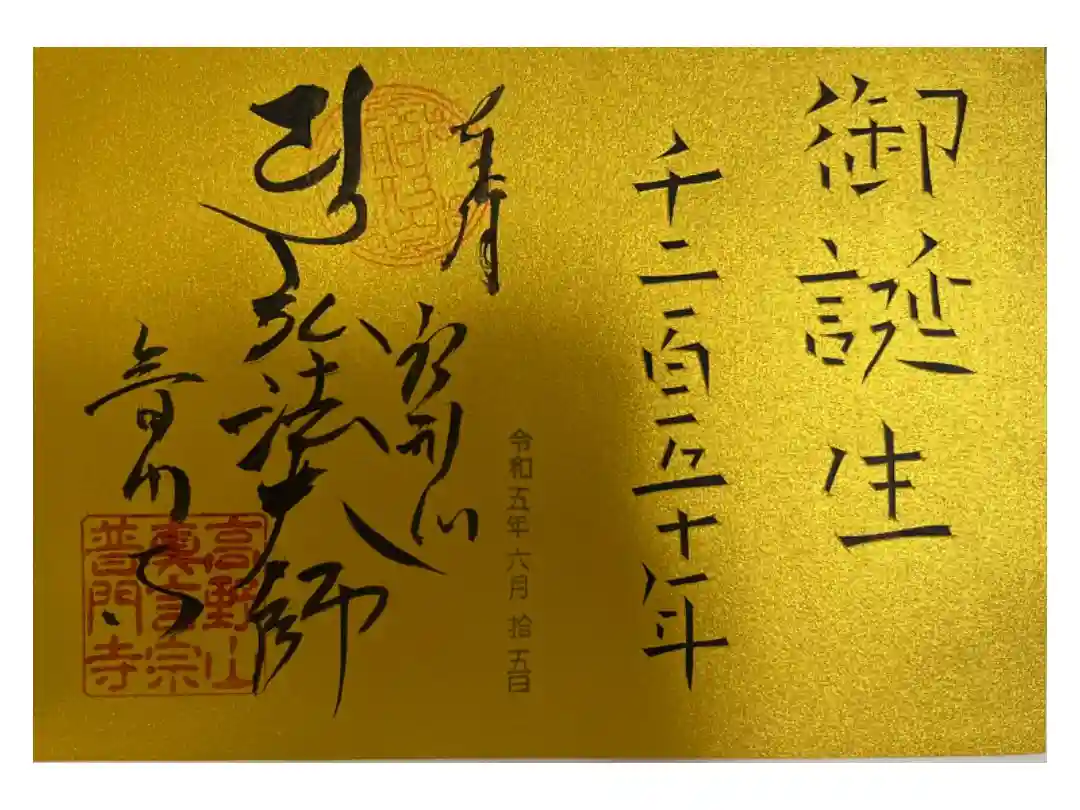 御誕生
千二百五十年
奉拝
令和五年六月拾五日
弘法大師
普門寺
高野山
真言宗
普門寺